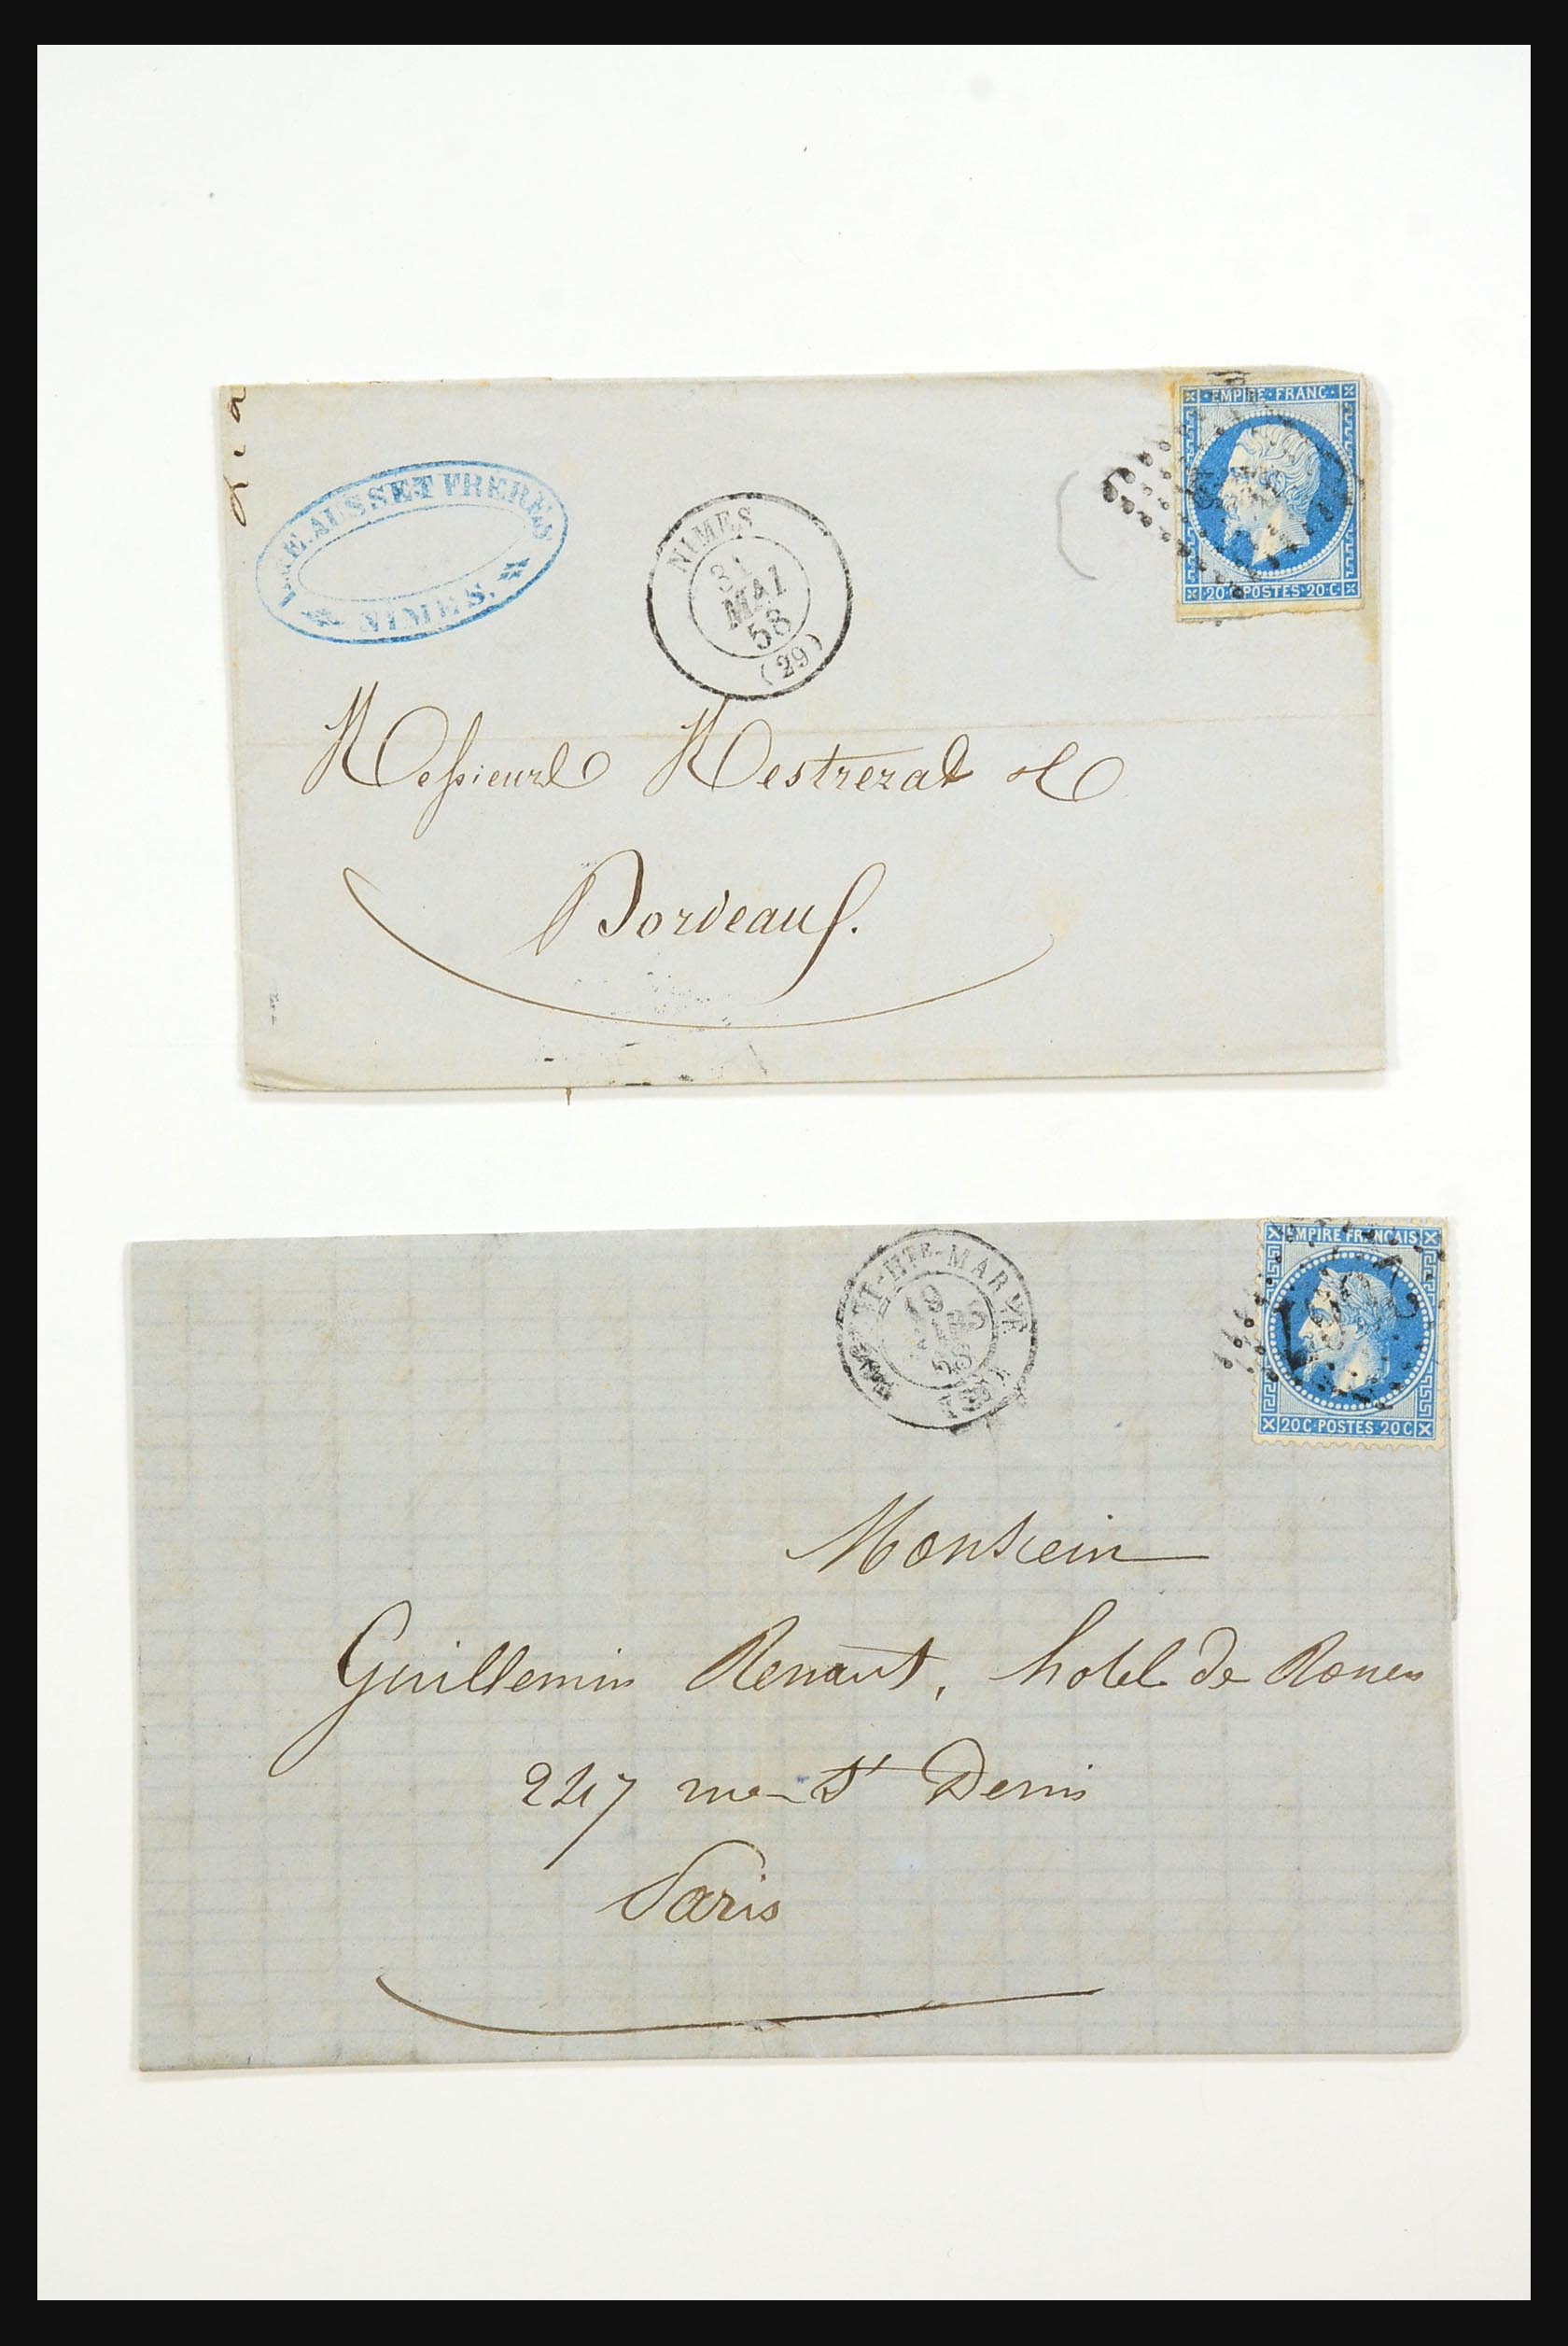 EMPIRE · FRANC ·
L. & E. AUSSET FRERES
NIMES.
NIMES
31
MAI
58
(29)
20 · C · POSTES · 20 · C ·
Messieurs Mestrezat &C
Bordeaux.
EMPIRE FRANCAIS
HTE-MARNE
19
68
20 C · POSTES · 20 C
Monsieur
Guillemin Renaut, hotel de Rouen
247 rue St Denis
Paris